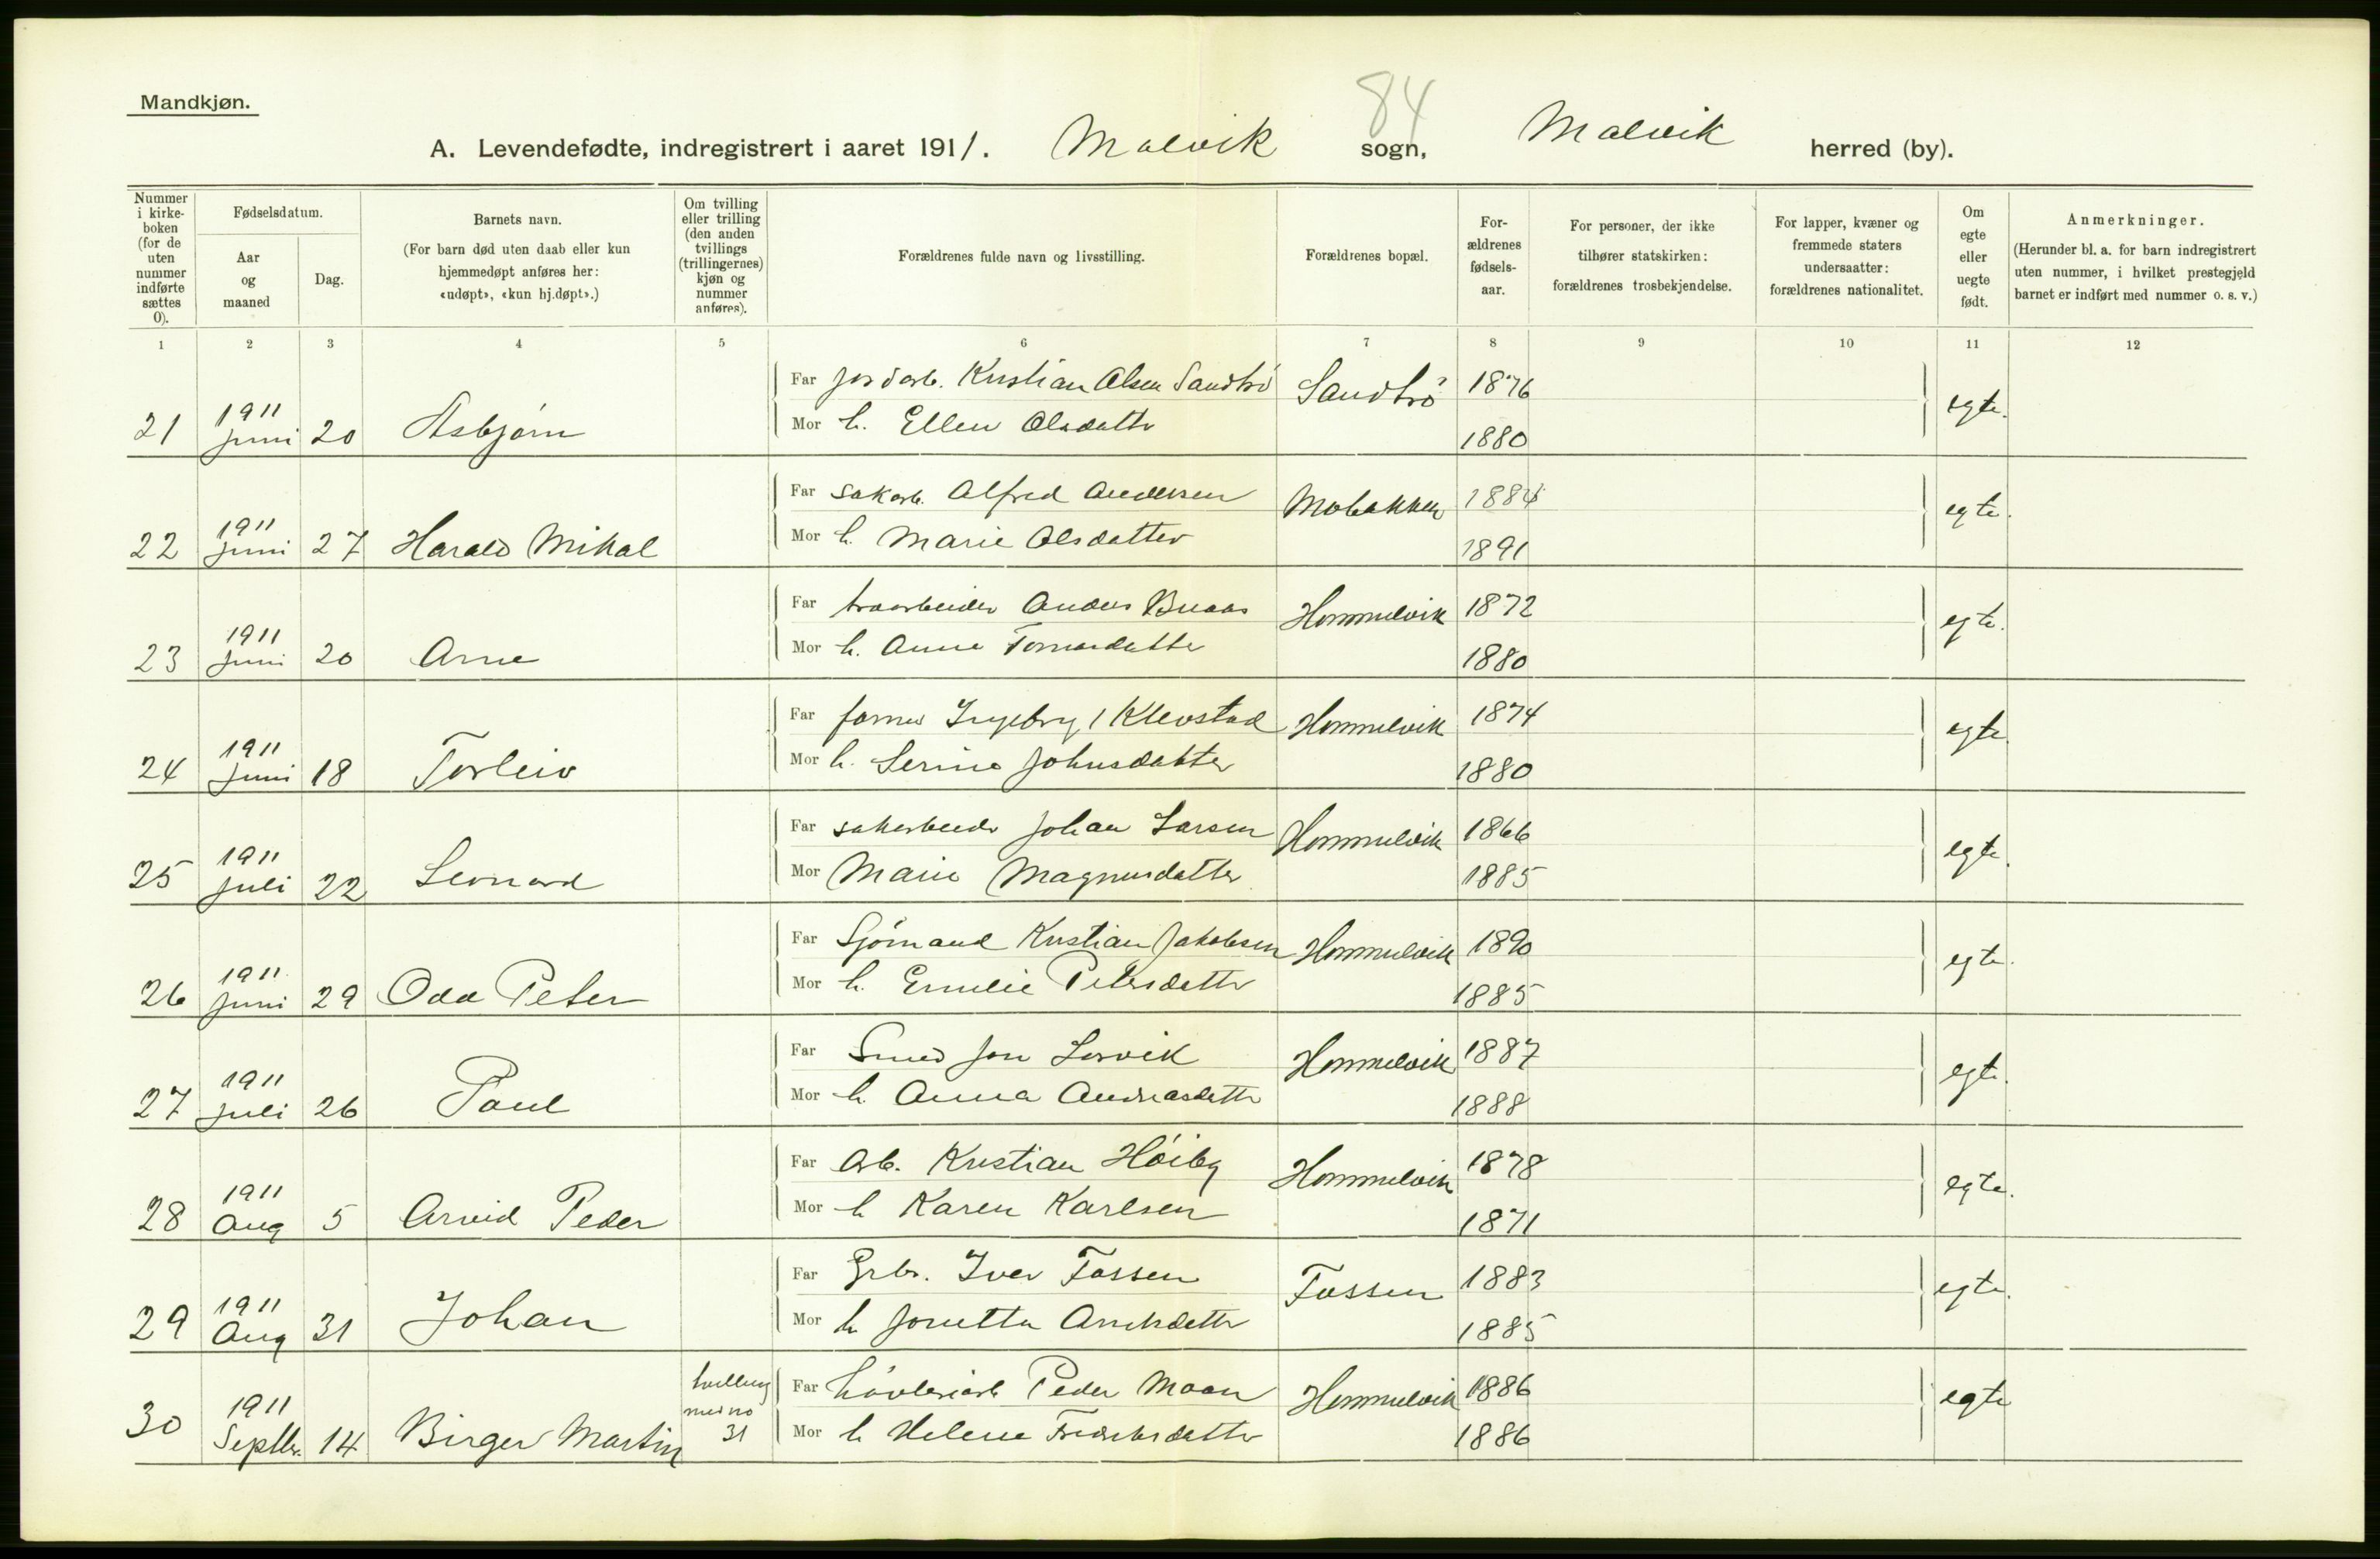 84
Mandkjøn.
A. Levendefødte, indregistrert i aaret 1911. Malvik sogn, Malvik herred (by).
Nummer i kirke-boken (for de uten nummer indførte sættes 0).
Fødselsdatum.
Aar og maaned
Dag.
Barnets navn.
(For barn død uten daab eller kun hjemmedøpt anføres her: «udøpt», «kun hj.døpt».)
Om tvilling eller trilling (den anden tvillings (trillingernes) kjøn og nummer anføres).
Forældrenes fulde navn og livsstilling.
Forældrenes bopæl.
For-ældrenes fødsels-aar.
For personer, der ikke tilhører statskirken: forældrenes trosbekjendelse.
For lapper, kvæner og fremmede staters undersaatter: forældrenes nationalitet.
Om egte eller uegte født.
Anmerkninger.
(Herunder bl. a. for barn indregistrert uten nummer, i hvilket prestegjeld barnet er indført med nummer o. s. v.)
1 2 3 4 5 6 7 8 9 10 11 12
21 1911 juni 20 Asbjørn
Far jordarb. Kristian Olsen Sandtrö Sandtrö 1876 egte.
Mor h. Ellen Olsdattr 1880
22 1911 juni 27 Harald Mikal
Far sakarb. Alfred Andersen Mobakken 1884 egte.
Mor h. Marie Olsdatter 1891
23 1911 juni 20 Arne
Far Anders Buaas Hommelvik 1872 egte.
Mor h. Anne 1880
24 1911 juni 18 Torleiv
Far Ingebrg Klevstad Hommelvik 1874 egte.
Mor h. Serine Johnsdatter 1880
25 1911 juli 22 Leonard
Far sakarbeider Johan Larsen Hommelvik 1866 egte.
Mor Marie Magnusdatter 1885
26 1911 juni 29 Odd Peter
Far Sjömand Kristian Jakobsen Hommelvik 1890 egte.
Mor h. Emelie Petersdattr 1885
27 1911 juli 26 Paul
Far Smed Jon Lorvik Hommelvik 1887 egte.
Mor h. Anna Andreasdattr 1888
28 1911 Aug 5 Arvid Peder
Far Arb. Kristian Höiby Hommelvik 1878 egte.
Mor h Karen Karlsen 1871
29 1911 Aug 31 Johan
Far Grbr. Iver Fossen Fossen 1883 egte.
Mor h Jonetta 1885
30 1911 Septbr. 14 Birger Martin tvilling med no 31
Far Peder Moan Hommelvik 1886 egte
Mor h Helene Fredriksdattr 1886